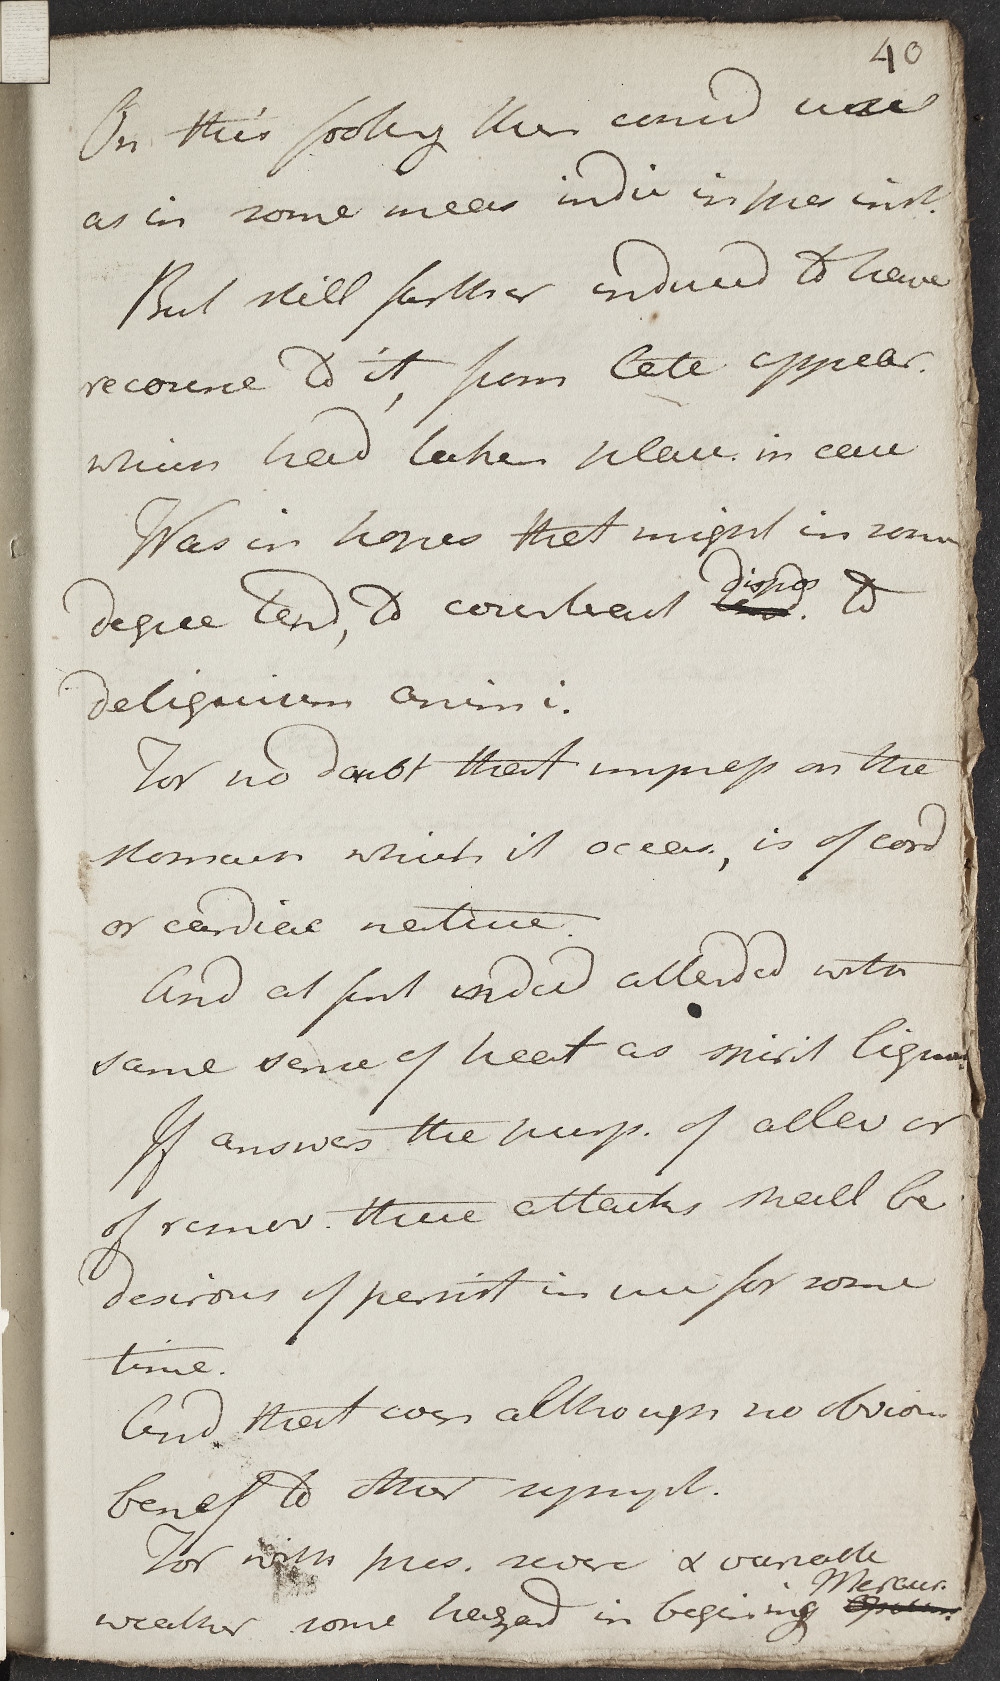 40
On this footing then consid use
as in some meas indic in pres inst.
But still further induced to have
recourse to it, from late appear.
which had taken place in case
Was in hopes that might in some
degree tend, to counteract dispos to
deliquium animi.
For no doubt that impress on the
stomach which it occas., is of cord
or cardiac nature.
And at first indeed attended with
same sense of heat as spirit liquor
If answers the purp. of allev or
of remov. these attacks shall be
desirous of persist in use for some
time.
And that even although no obvious
benef to other sympt.
For with pres. severe & variable
weather some hazard in begining Mercur.